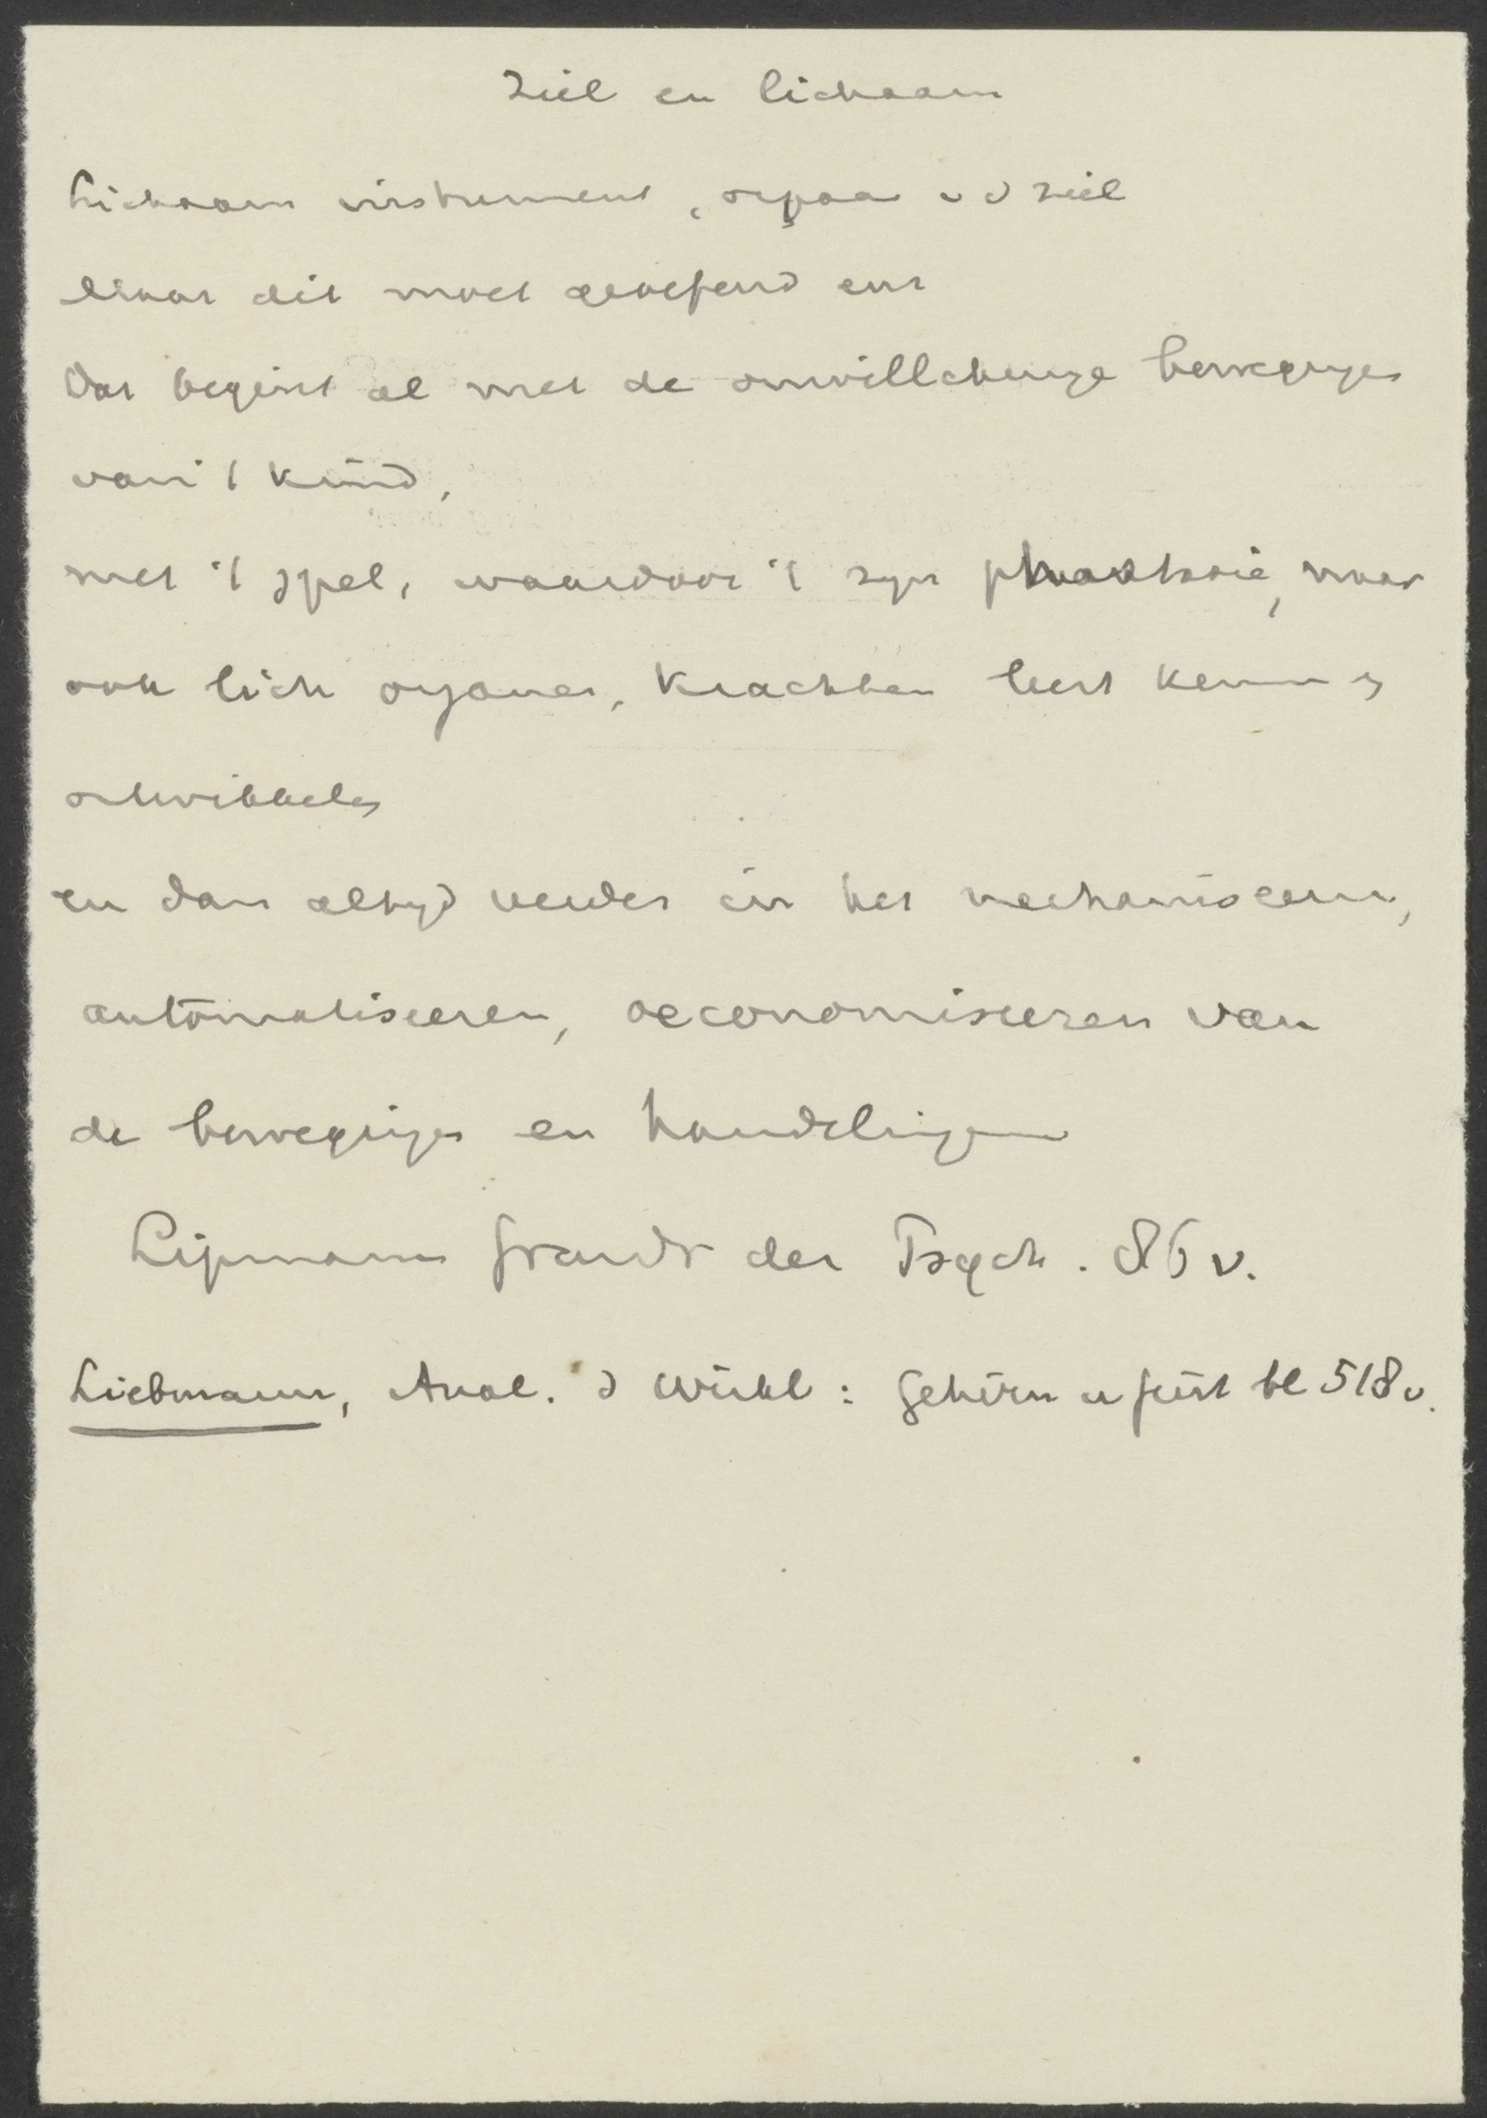 Ziel en lichaam
Lichaam instrument, orgaan v d ziel
Maar dit moet geoefend enz
Dat begint al met de onwillekeurige bewegingen
van 't kind,
met 't spel, waardoor 't zijn phantasie, maar
ook lich organen, krachten leert kennen
ontwikkelen
en dan altijd verder in het mechaniseeren,
automatiseeren, oeconomiseeren van
de bewegingen en handelingen
Lipmann Grundr der Psych. 86 v.
Liebmann, Anal. d Wirkl: Gehirn u Geist bl 518 v.